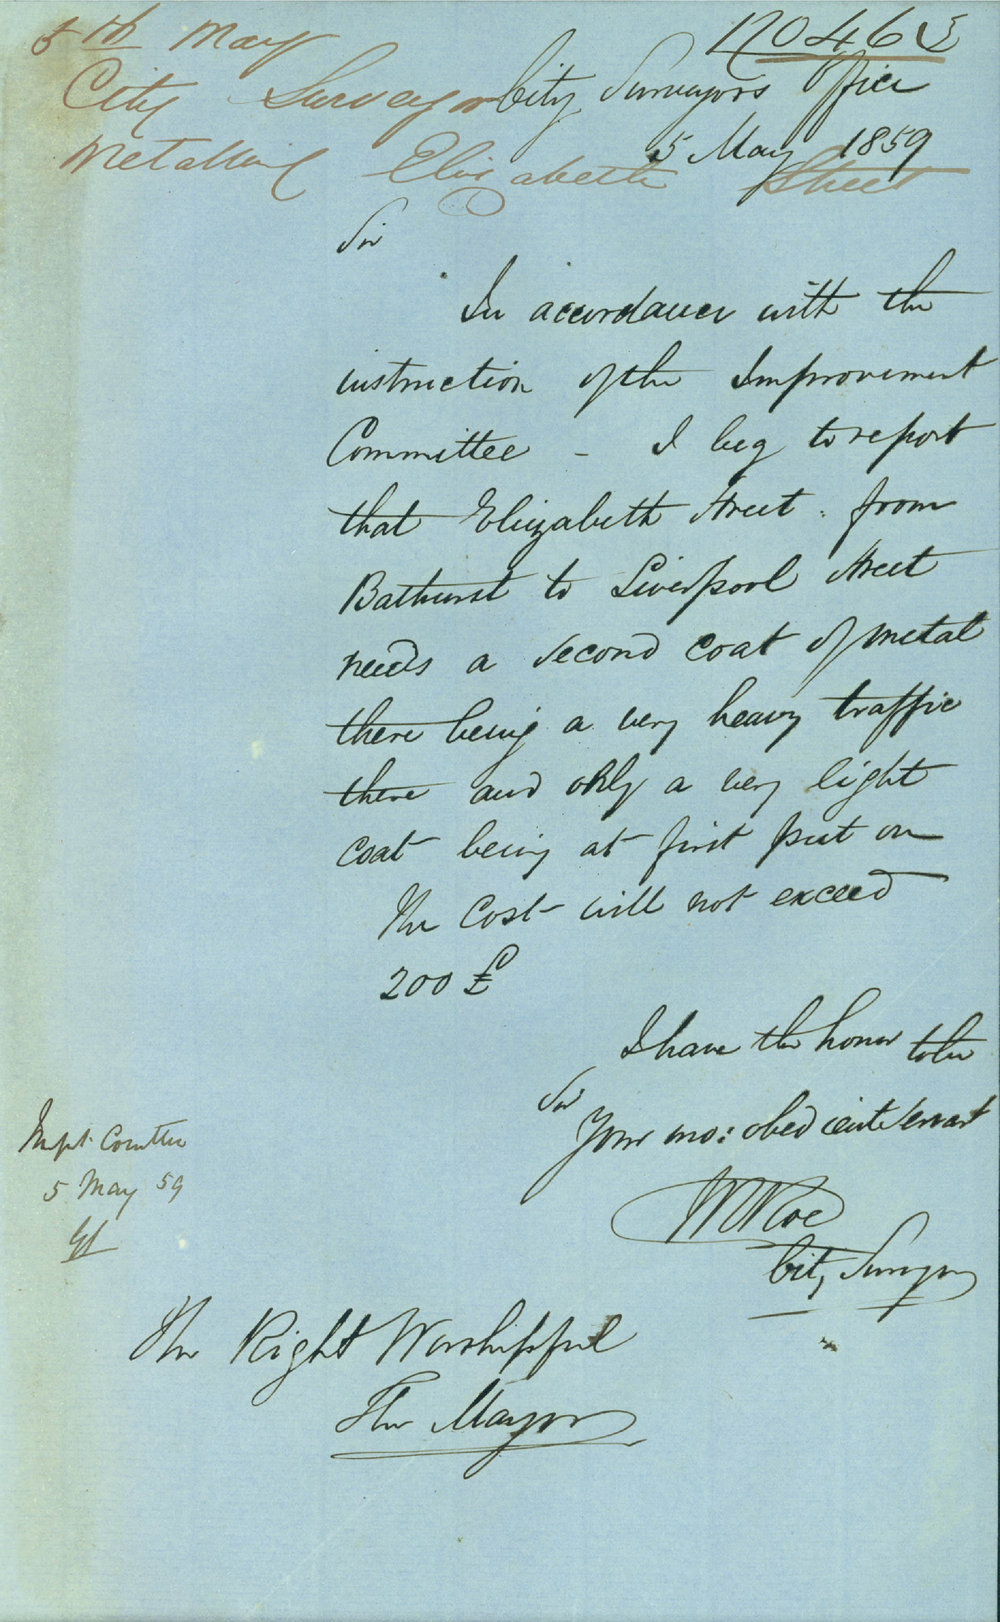 5th May
City Surveyor
Metalling Elizabeth Street
City Surveyors Office
5 May 1859
Sir
In accordance with the
instruction of the Improvement
Committee - I beg to report
that Elizabeth Street from
Bathurst to Liverpool Street
needs a second coat of metal
there being a very heavy traffic
there and only a very light
coat being at first put on
The Cost will not exceed
200 £
I have the honor to be
Sir
Your mo: obedient Servant
City Surveyor
5 May 59
The Right Worshipful
The Mayor